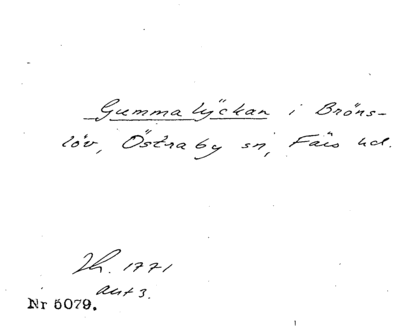 Gummalyckan i Bröns-
löv, Östraby sn, Färs hd.
Lh. 1771
akt 3.
Nr 5079.